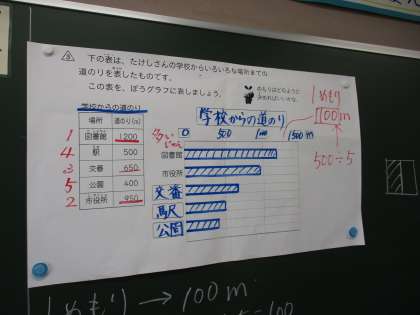 ③ 下の表は、たけしさんの学校からいろいろな場所までの
道のりを表したものです。
この表を、ぼうグラフに表しましょう。
学校からの道のり
場所 道のり(m)
1 図書館 1200
4 駅 500
3 交番 650
5 公園 400
2 市役所 950
学校からの道のり
多い
じゅん
0 500 1000 1500 (m)
図書館
市役所
交番
公園
1めもり
100m
500÷5
1めもり→100m